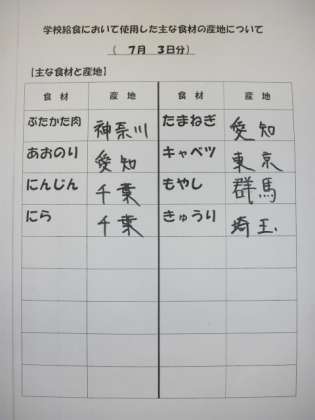 学校給食において使用した主な食材の産地について
( 7月 3日分)
【主な食材と産地】
食材 産地 食材 産地
ぶたかた肉 神奈川 たまねぎ 愛知
あおのり 愛知 キャベツ 東京
にんじん 千葉 もやし 群馬
にら 千葉 きゅうり 埼玉